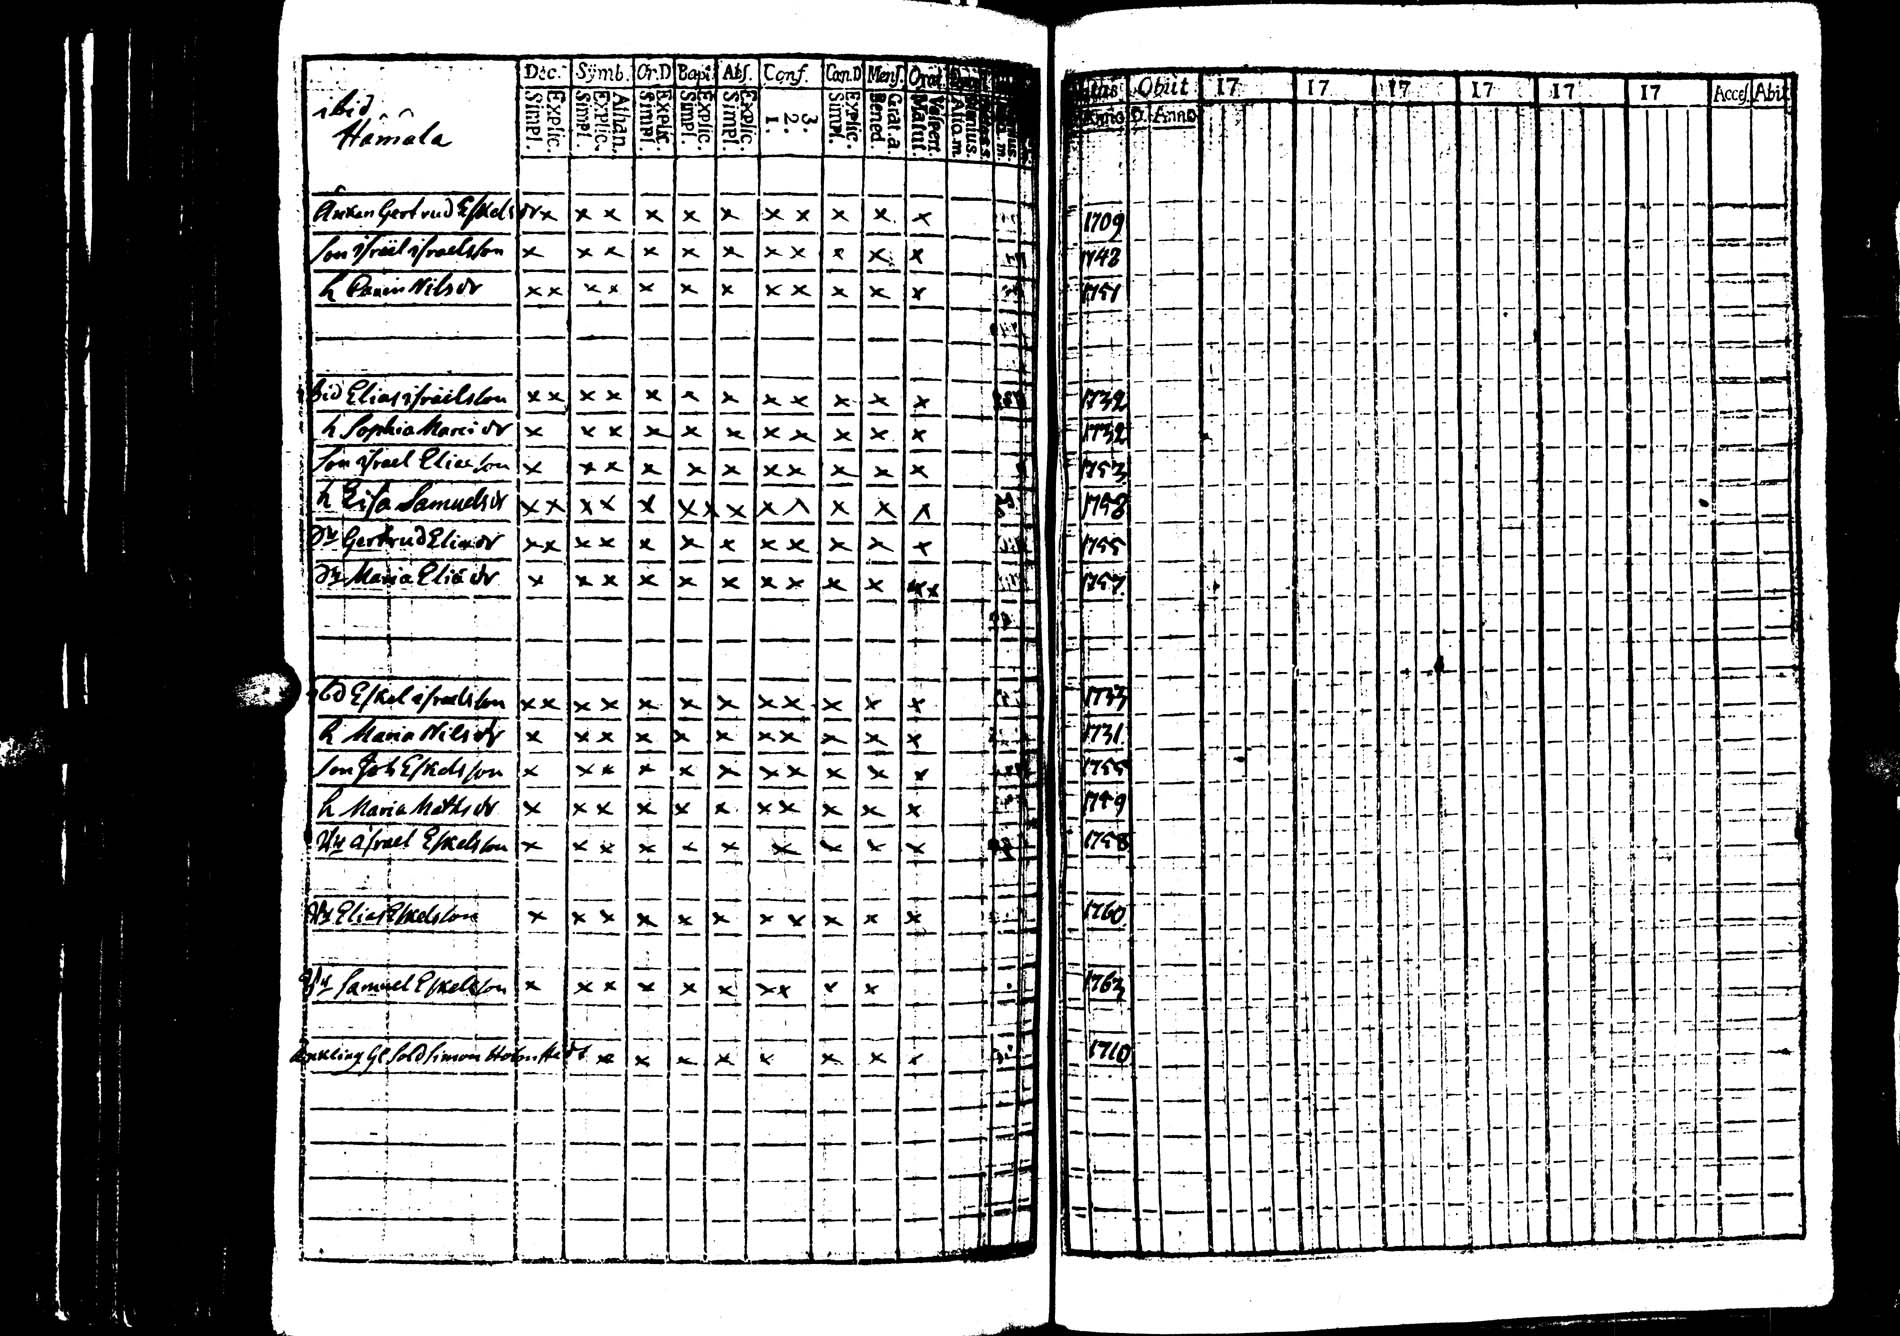 Dec. Symb. Or.D Bapt. Abs. Conf. Cœn.D Mens. Orat.
Simpl. Explic. Simpl. Explic. Athan. Simpl. Explic. Simpl. Explic. Simpl. Explic. 1. 2. 3. Simpl. Explic. Bened. Grat.a. Matut. Vespert.
Obiit 17 17 17 17 17 17 Acces. Abit
Anno D. Anno
ibid
Håmåla
Änkan Gertrud Eskelsdr x x x x x x x x x x x 1709
son Israel Israelsson x x x x x x x x x x x 1748
h Karin Nilsdr x x x x x x x x x x x x 1751
ibid Elias Israelsson x x x x x x x x x x x x 1732
h Sophia Marcidr x x x x x x x x x x x 1732
son Israel Eliæson x x x x x x x x x x x 1753
h Lisa Samuelsdr x x x x x x x x x x x x x 1758
Dr Gertrud Eliædr x x x x x x x x x x x x 1755
Dr Maria Eliædr x x x x x x x x x x x x 1757
ibd Eskel Israelsson x x x x x x x x x x x x 1733
h Maria Nilsdr x x x x x x x x x x x 1731
son Joh Eskelsson x x x x x x x x x x x 1755
h Maria Mathsdr x x x x x x x x x x x 1749
Israel Eskelsson x x x x x x x x x x 1758
Elias Eskelsson x x x x x x x x x x x 1760
Samuel Eskelsson x x x x x x x x x x 1763
Gl Sold Simon Holmstedt x x x x x x x x 1710